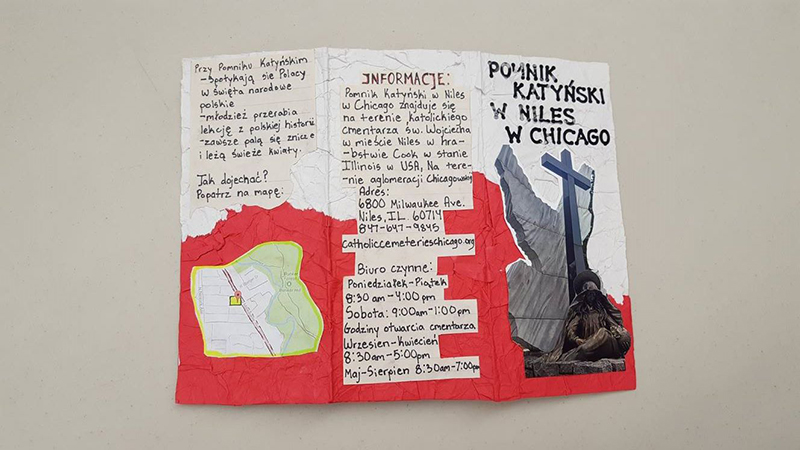 Przy Pomniku Katyńskim
-spotykają się Polacy
w święta narodowe
polskie
-młodzież przerabia
lekcję z polskiej historii
-zawsze palą się znicze
i leżą świeże kwiaty.
Jak dojechać?
Popatrz na mapę:
INFORMACJE:
Pomnik Katyński w Niles
w Chicago znajduje się
na terenie katolickiego
cmentarza św. Wojciecha
w mieście Niles w hra-
-bstwie Cook w stanie
Illinois w USA, Na tere-
-nie aglomeracji Chicagowskiej
Adres:
6800 Milwaukee Ave.
Niles, IL. 60714
847-647-9845
catholiccemeterieschicago.org
Biuro czynne:
Poniedziałek-Piątek
8:30 am-4:00 pm
Sobota: 9:00am-1:00pm
Godziny otwarcia cmentarza
Wrzesień-Kwiecień
8:30am-5:00pm
Maj-Sierpień 8:30am-7:00pm
POMNIK
KATYŃSKI
W NILES
W CHICAGO